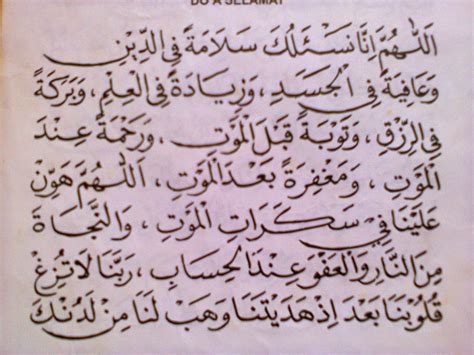 DO'A SELAMAT
اَللّٰهُمَّ اِنَّا نَسْئَلُكَ سَلَامَةً فِى الدِّيْنِ
وَعَافِيَةً فِى الْجَسَدِ ، وَزِيَادَةً فِى الْعِلْمِ ، وَبَرَكَةً
فِى الرِّزْقِ ، وَتَوْبَةً قَبْلَ الْمَوْتِ ، وَرَحْمَةً عِنْدَ
الْمَوْتِ ، وَمَغْفِرَةً بَعْدَ الْمَوْتِ ، اَللّٰهُمَّ هَوِّنْ
عَلَيْنَا فِيْ سَكَرَاتِ الْمَوْتِ ، وَالنَّجَاةَ
مِنَ النَّارِ وَالْعَفْوَ عِنْدَ الْحِسَابِ ، رَبَّنَا لَا تُزِغْ
قُلُوْبَنَا بَعْدَ اِذْ هَدَيْتَنَا وَهَبْ لَنَا مِنْ لَدُنْكَ